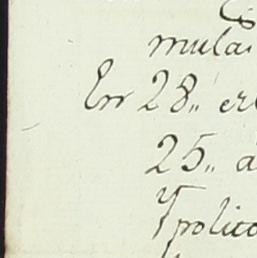 mula
En 28.. er
25.. a
Ypolito